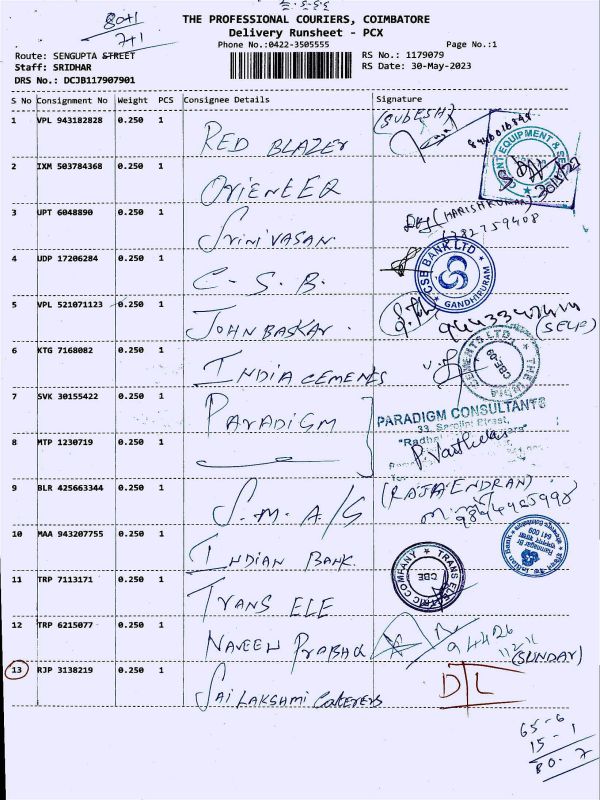 80+1
7+1
THE PROFESSIONAL COURIERS, COIMBATORE
Delivery Runsheet - PCX
Phone No.:0422-3505555 Page No.:1
Route: SENGUPTA STREET RS No.: 1179079
Staff: SRIDHAR RS Date: 30-May-2023
DRS No.: DCJB117907901
S No Consignment No Weight PCS Consignee Details Signature
1 VPL 943182828 0.250 1 RED BLAZER (SUBESH)
2 IXM 503784368 0.250 1 ORIENTEER
3 UPT 6048890 0.250 1 SRINIVASAN (HARISHKUMAR)
4 UDP 17206284 0.250 1 C.S.B. CSB BANK LTD GANDHIPURAM
5 VPL 521071123 0.250 1 JOHN BASKAR. (SELF)
6 KTG 7168082 0.250 1 INDIA CEMENTS
7 SVK 30155422 0.250 1 PARADIGM PARADIGM CONSULTANTS
8 MTP 1230719 0.250 1
9 BLR 425663344 0.250 1 S.M.A/S (RAJAENDRAN)
10 MAA 943207755 0.250 1 INDIAN BANK.
11 TRP 7113171 0.250 1 TRANS ELE TRANS ELECTRIC COMPANY CBE
12 TRP 6215077 0.250 1 NAVEEN PRABHA 94426
(SUNDAY)
13 RJP 3138219 0.250 1 SAI LAKSHMI Caterers D L
65-6
15-1
80.7